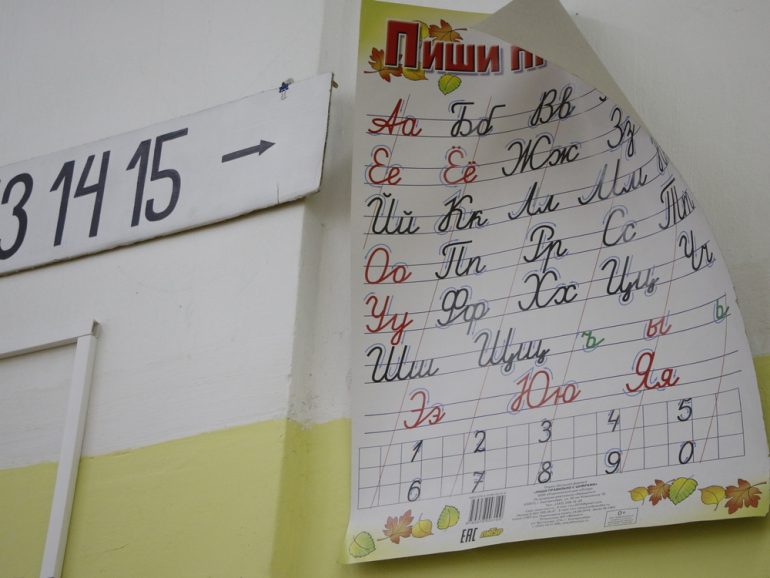 Пиши
Аа Бб Вв
Ее Ёё Жж Зз
Йй Кк Лл Мм
Оо Пп Рр Сс Тт
Уу Фф Хх Цц Чч
Шш Щщ ъ ы ь
Ээ Юю Яя
1 2 3 4 5
6 7 8 9 0
EAC
3 14 15 →